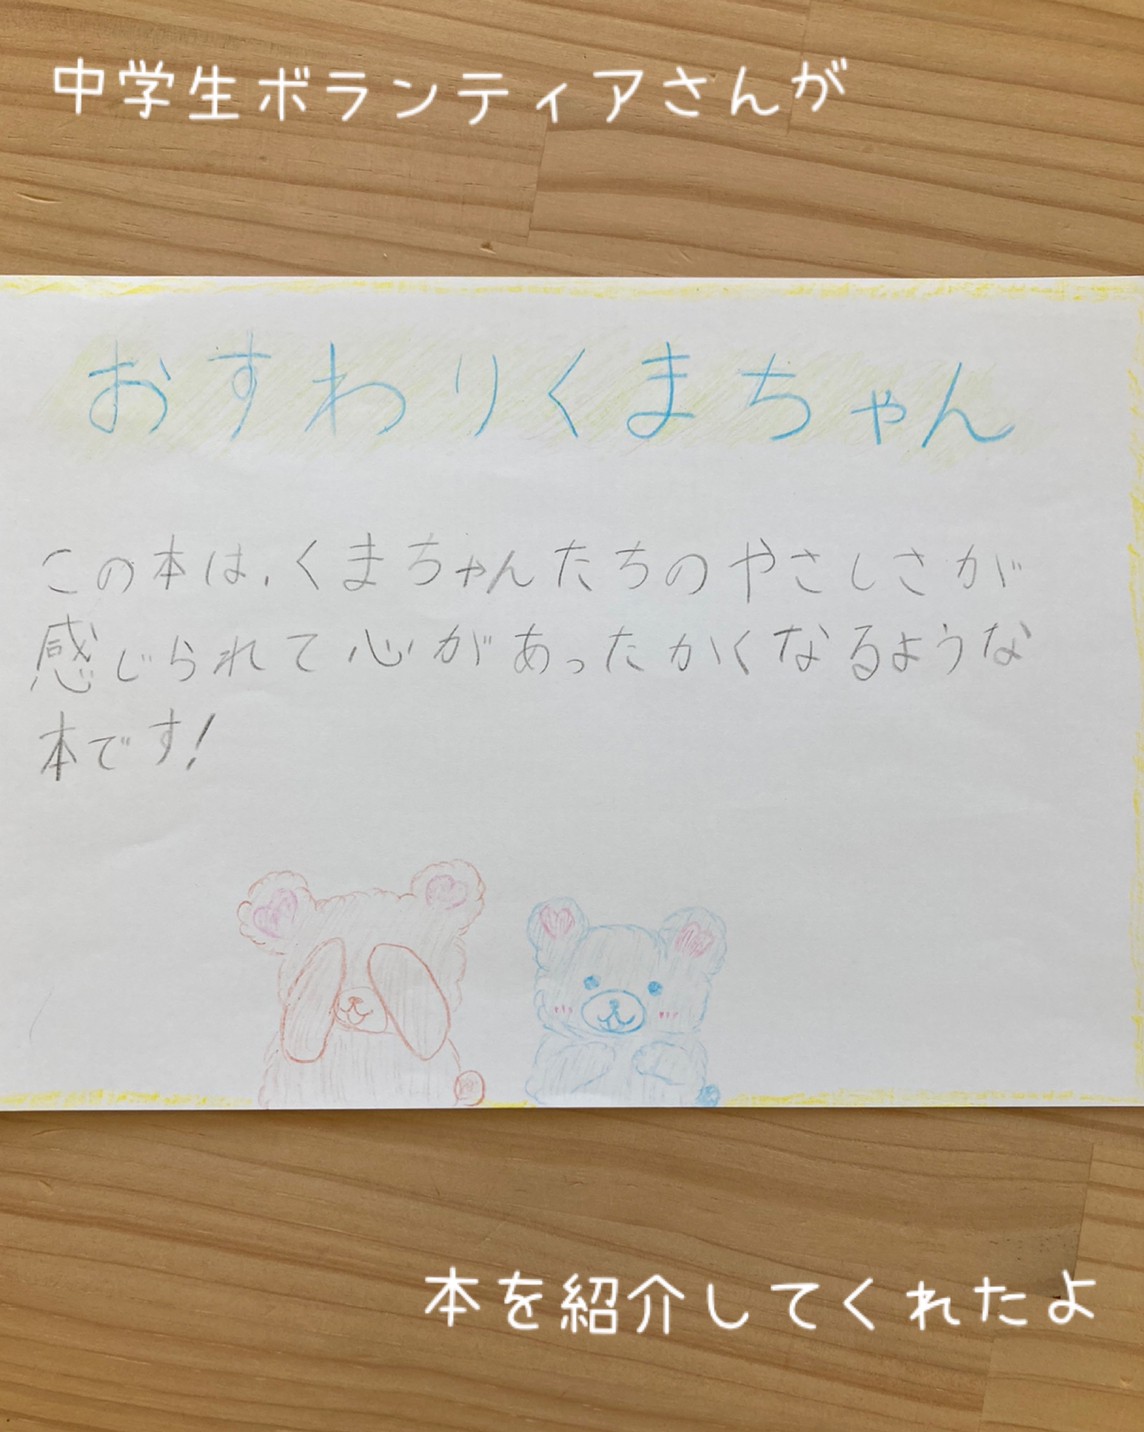 中学生ボランティアさんが
おすわりくまちゃん
この本は、くまちゃんたちのやさしさが
感じられて心があったかくなるような
本です!
本を紹介してくれたよ